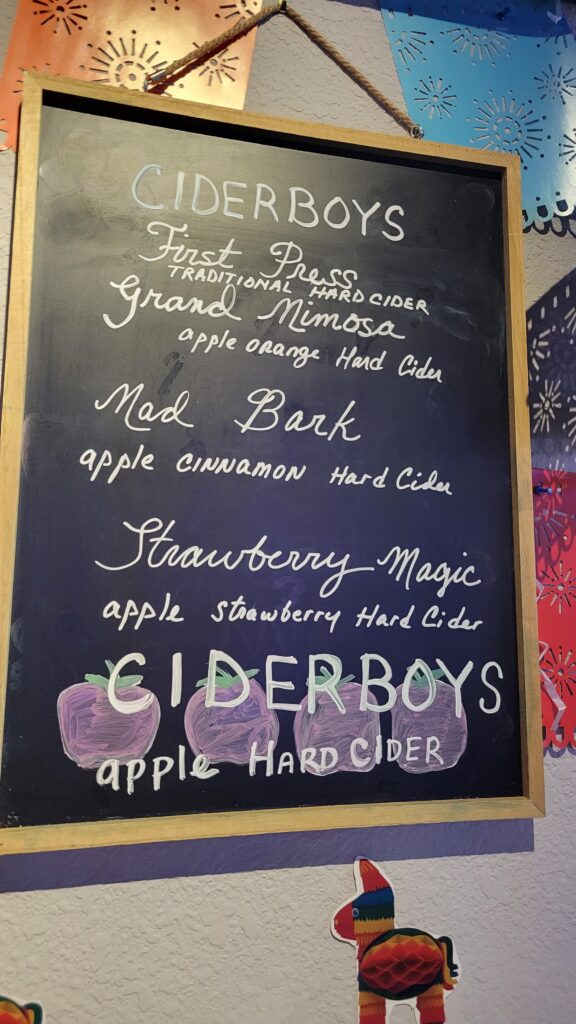 CIDERBOYS
First Press
TRADITIONAL HARD CIDER
Grand Mimosa
apple orange Hard Cider
Mad Bark
apple CINNAMON Hard Cider
Strawberry Magic
apple strawberry Hard Cider
CIDERBOYS
apple HARD CIDER